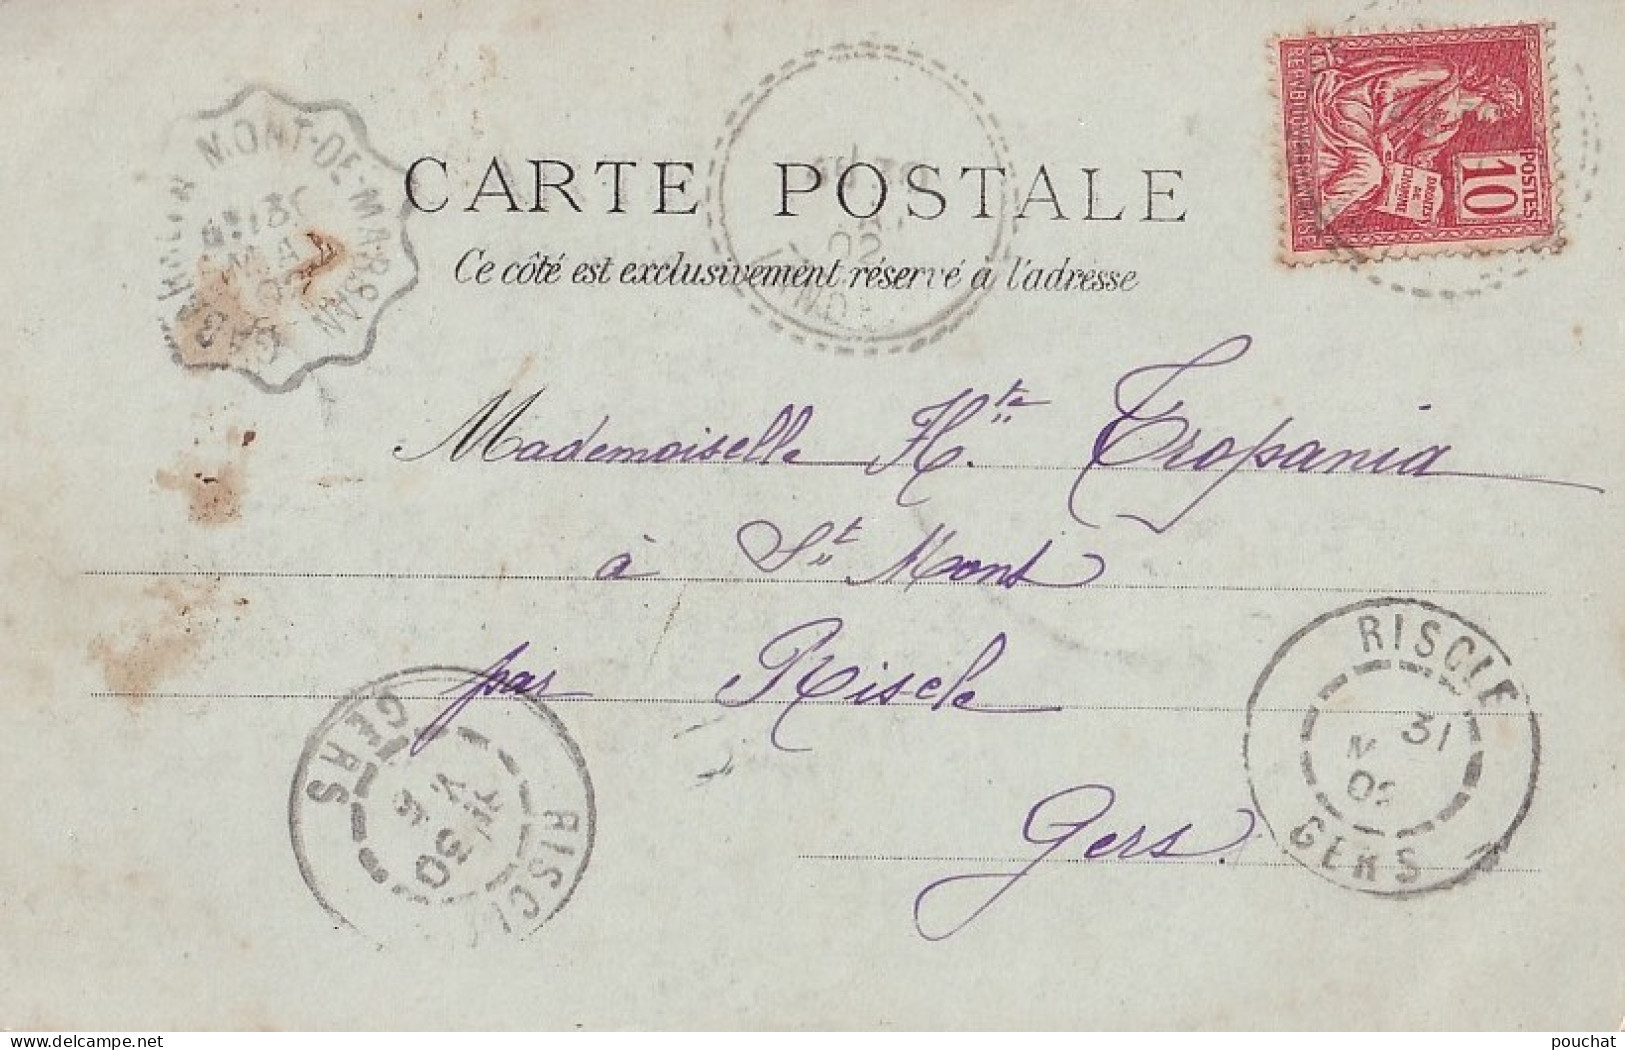 CARTE POSTALE
Ce côté est exclusivement réservé à l'adresse
REPUBLIQUE FRANÇAISE
POSTES
10
DROITS
DE
L'HOMME
MONT-DE-MARSAN
02
Mademoiselle H.te Tropania
à St Mont
par Riscle
Gers.
RISCLE
31
M
02
GERS
RISCL
30
GERS
delcampe.net
pouchat